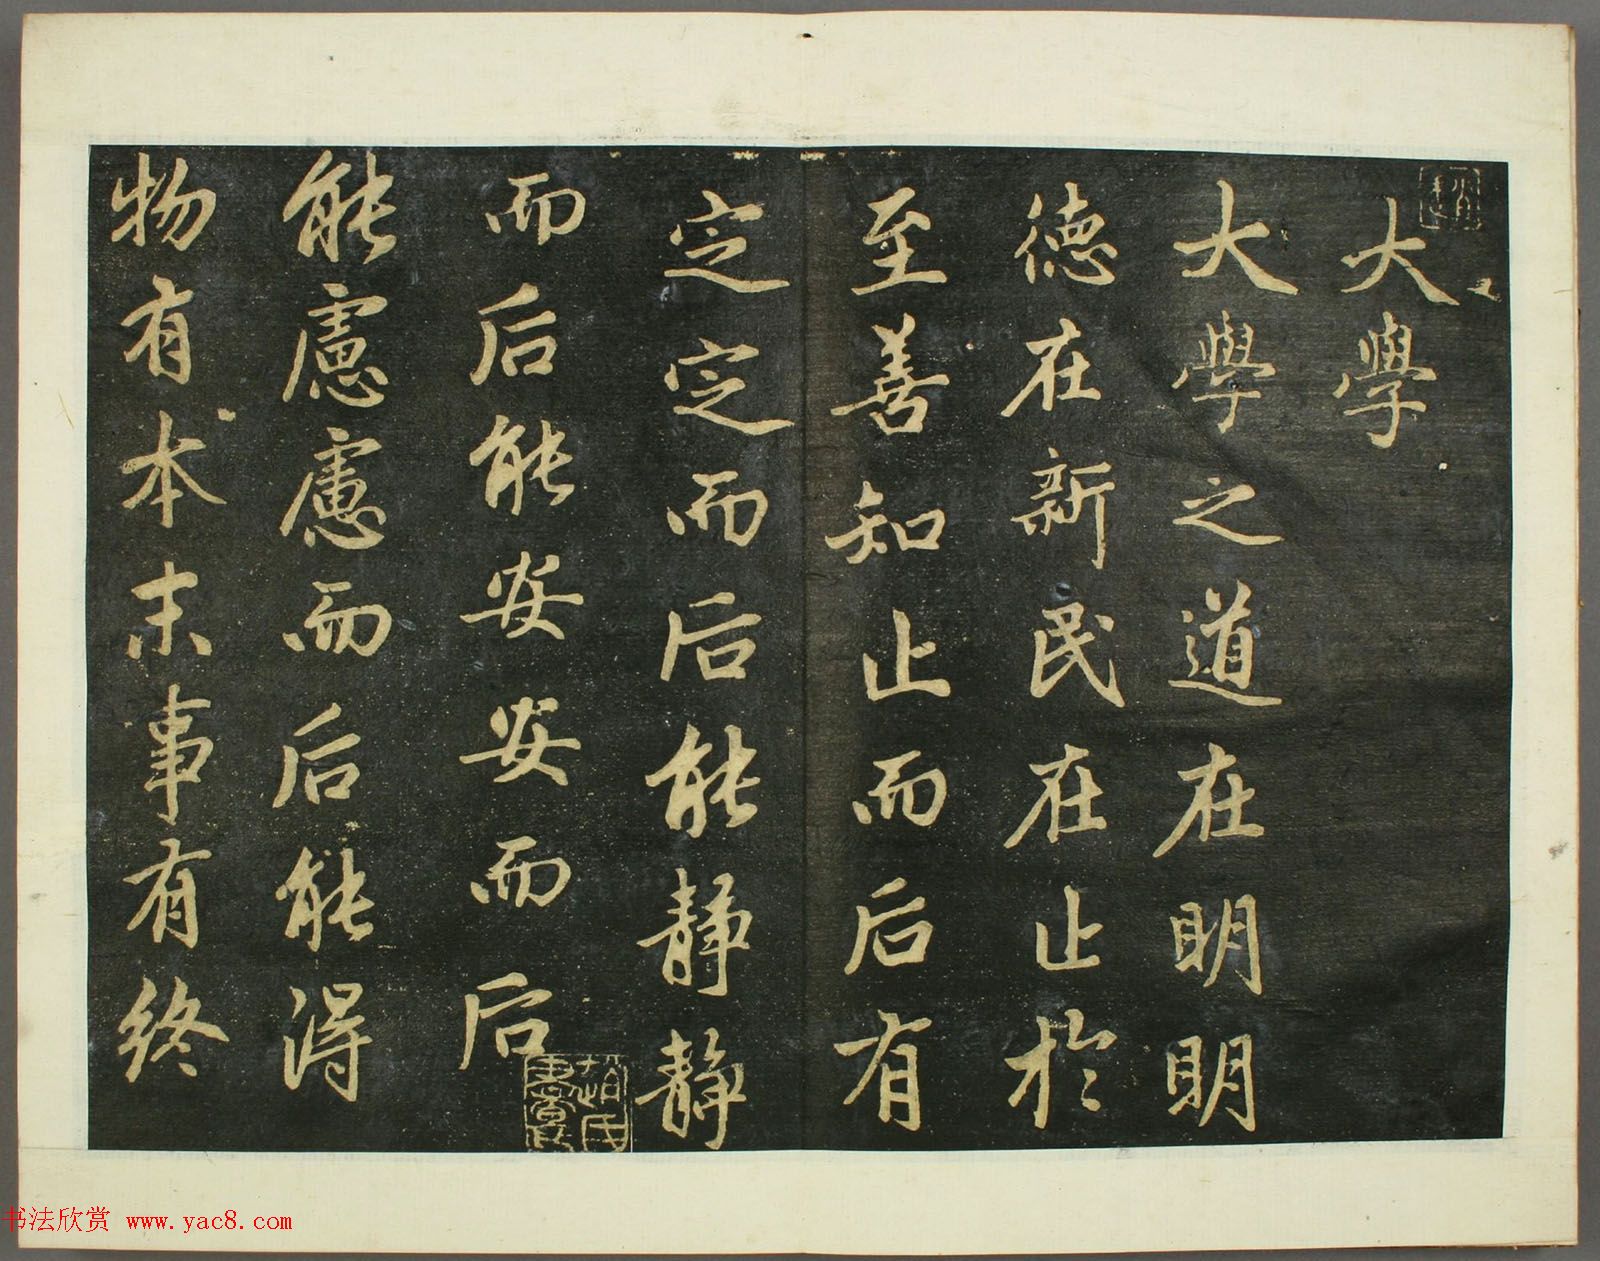 大學
大學之道在明明
德在新民在止於
至善知止而后有
定定而后能静静
而后能安安而后
能慮慮而后能得
物有本末事有終
書法欣赏 www.yac8.com